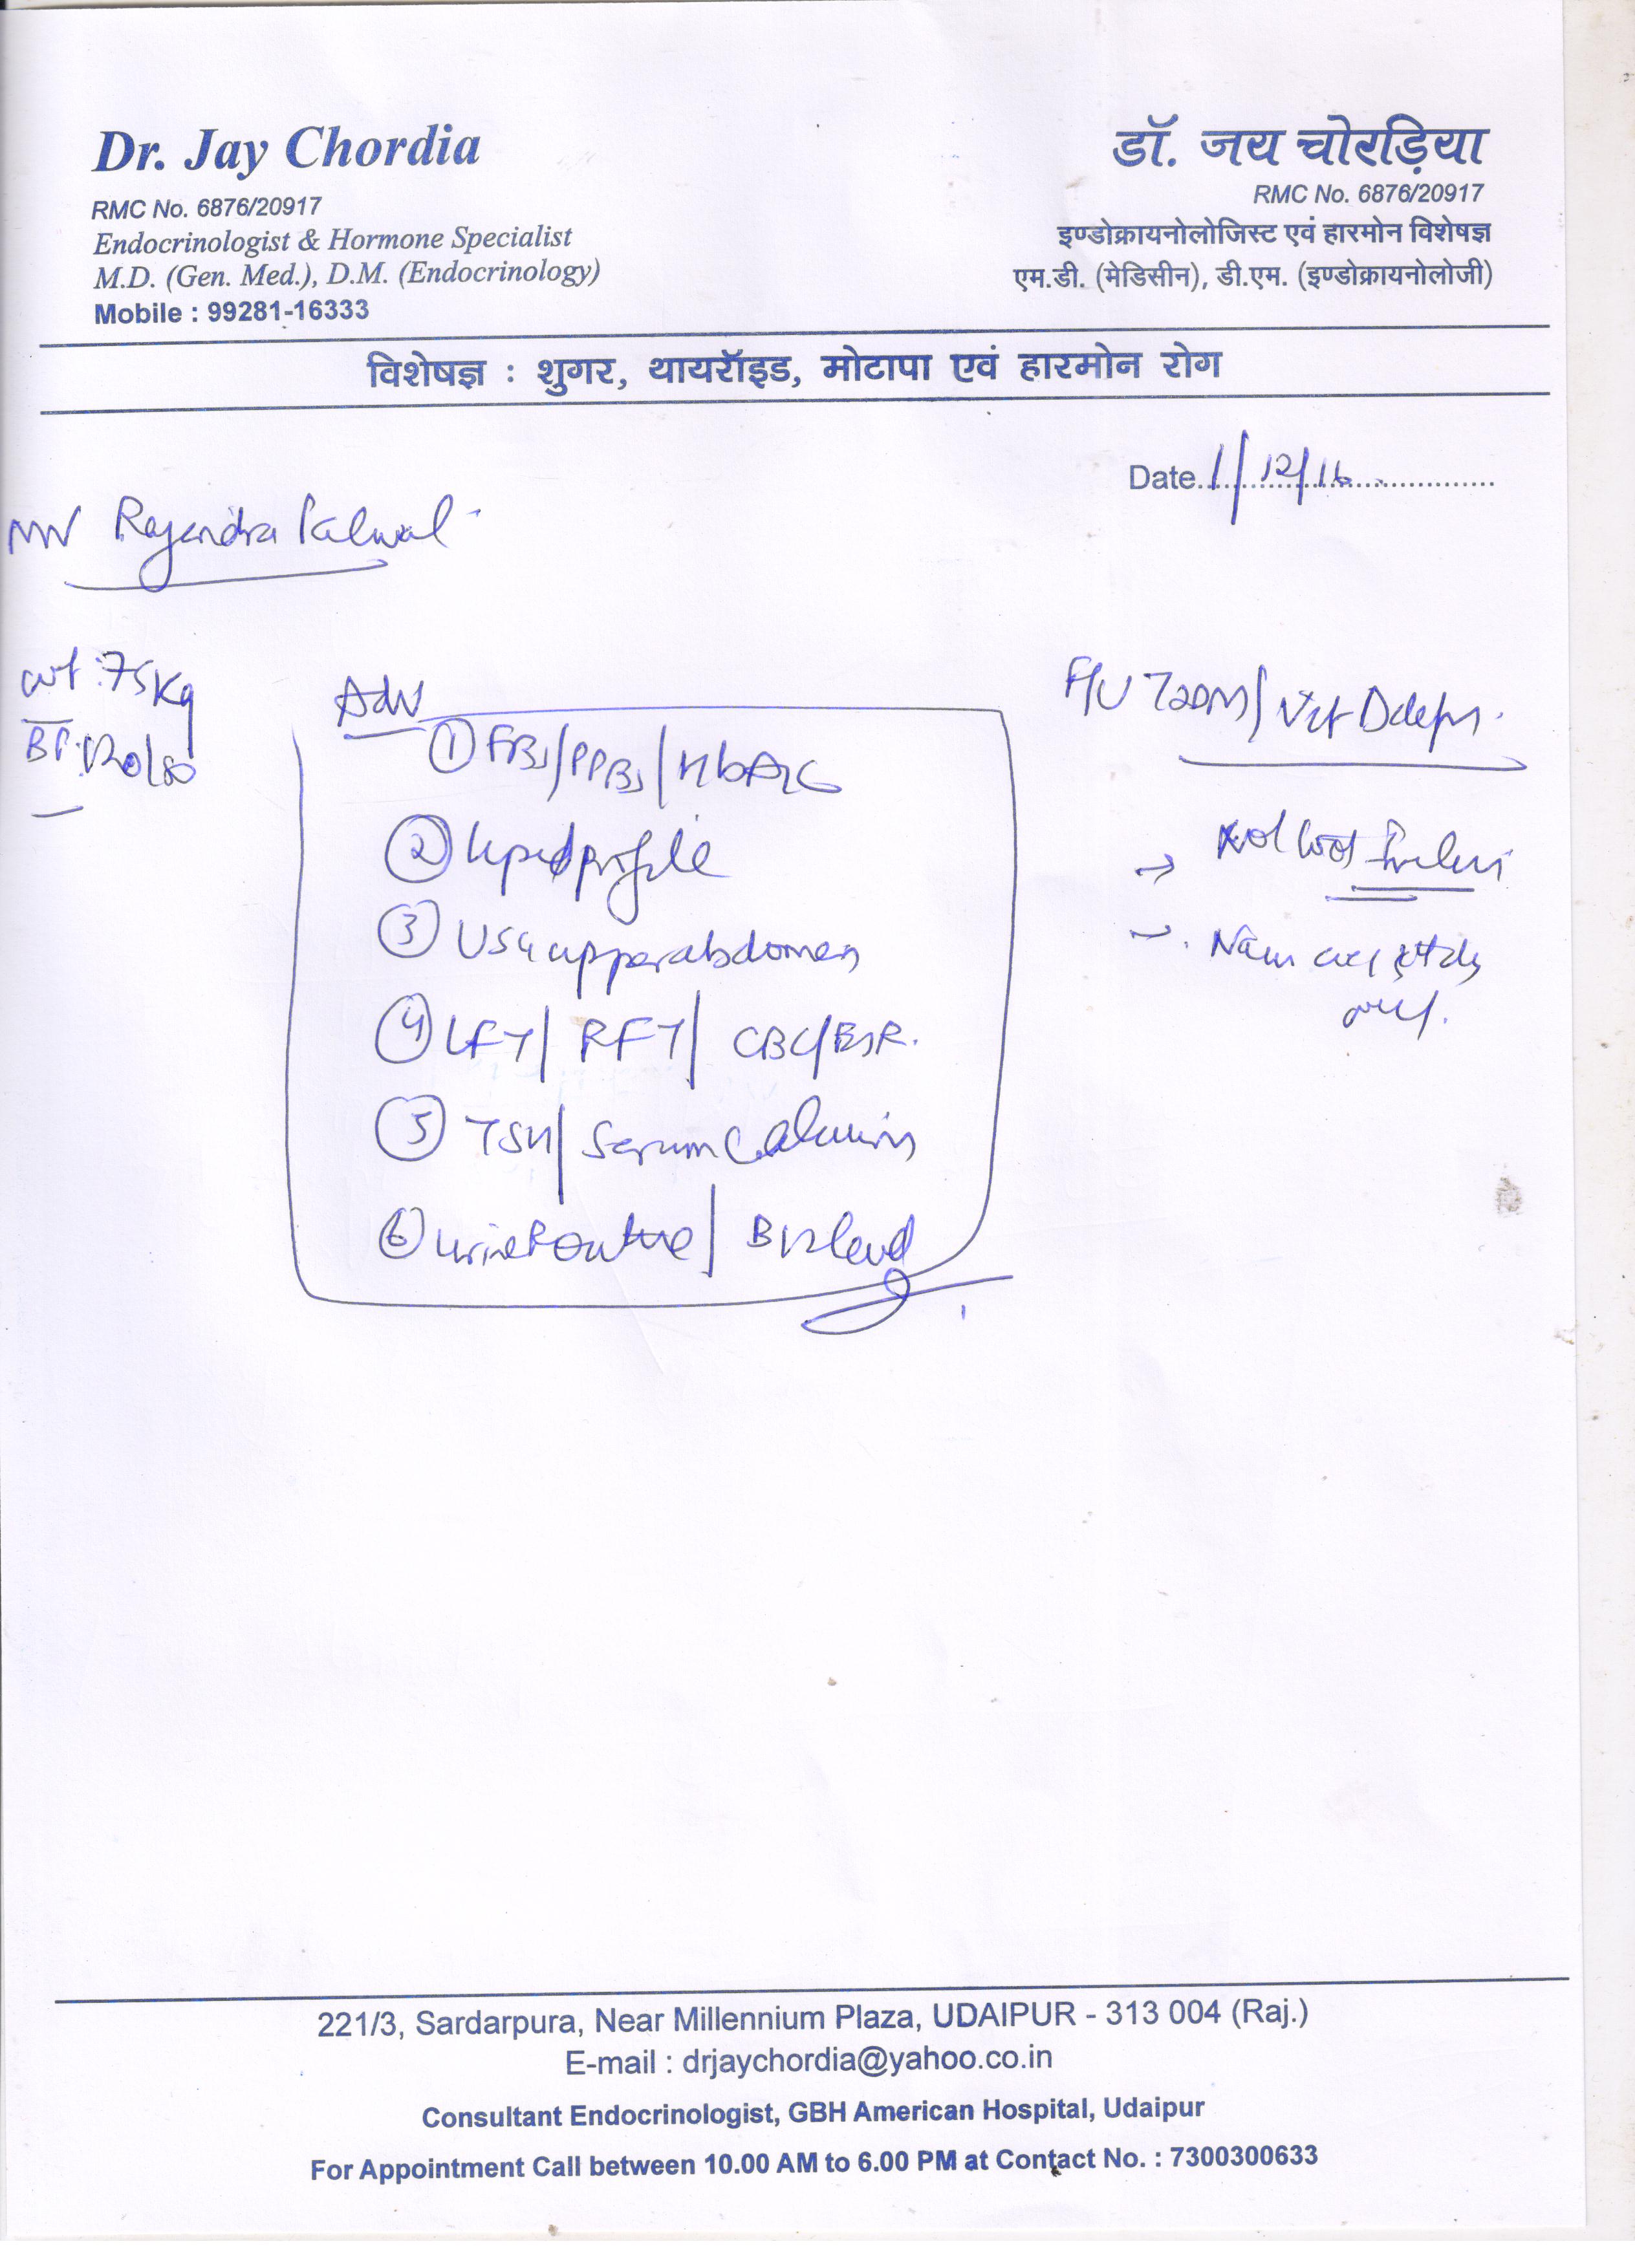 Dr. Jay Chordia
RMC No. 6876/20917
Endocrinologist & Hormone Specialist
M.D. (Gen. Med.), D.M. (Endocrinology)
Mobile : 99281-16333
डॉ. जय चोरड़िया
RMC No. 6876/20917
इण्डोक्रायनोलोजिस्ट एवं हारमोन विशेषज्ञ
एम.डी. (मेडिसीन), डी.एम. (इण्डोक्रायनोलोजी)
विशेषज्ञ : शुगर, थायरॉइड, मोटापा एवं हारमोन रोग
Date 1/12/16
Rajendra
wt : 75 Kg
BP : 120/80
Adv
① FBS/PPBS/HbA1C
② Lipid profile
③ USG upper abdomen
④ LFT/ RFT/ CBC/ESR.
⑤ TSH/ Serum Calcium
⑥ Urine Routine/ B12 level
F/U T2DM/ Vit D
221/3, Sardarpura, Near Millennium Plaza, UDAIPUR - 313 004 (Raj.)
E-mail : drjaychordia@yahoo.co.in
Consultant Endocrinologist, GBH American Hospital, Udaipur
For Appointment Call between 10.00 AM to 6.00 PM at Contact No. : 7300300633